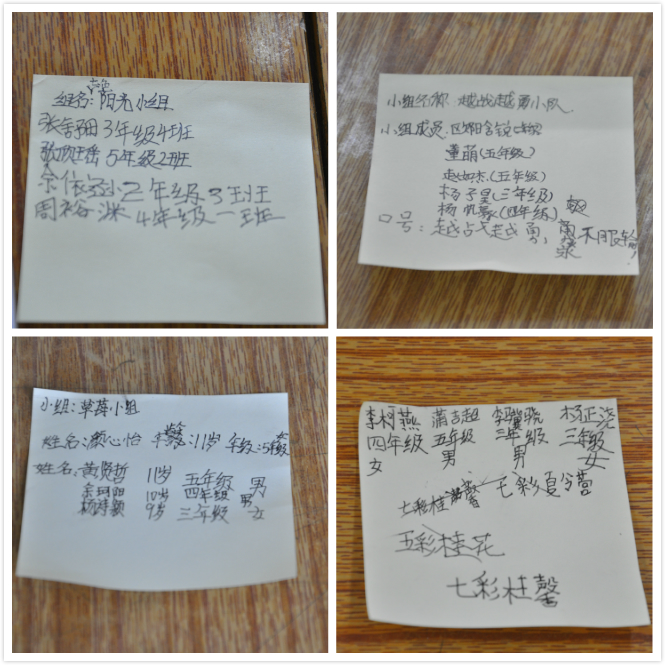 组名:阳光小组
3年级4班
5年级2班
余依 二年级3班
周裕渊 4年级一班
小组名称 越战越勇小队
小组成员
董萌(五年级)
杰(五年级)
杨子昊(三年级)
杨 (四年级)
口号:越战越勇, 永不服输!
小组:草莓小组
姓名:颜心怡 年龄:11岁 年级:5年级 女
姓名:黄贤哲 11岁 五年级 男
余珂阳 10岁 四年级 男
杨诗颖 9岁 三年级 女
李柯燕 萧吉超 李骥骁 杨正浇
四年级 五年级 三年级 三年级
女 男 男 女
七彩桂 馨 七彩夏令营
五彩桂花
七彩桂馨